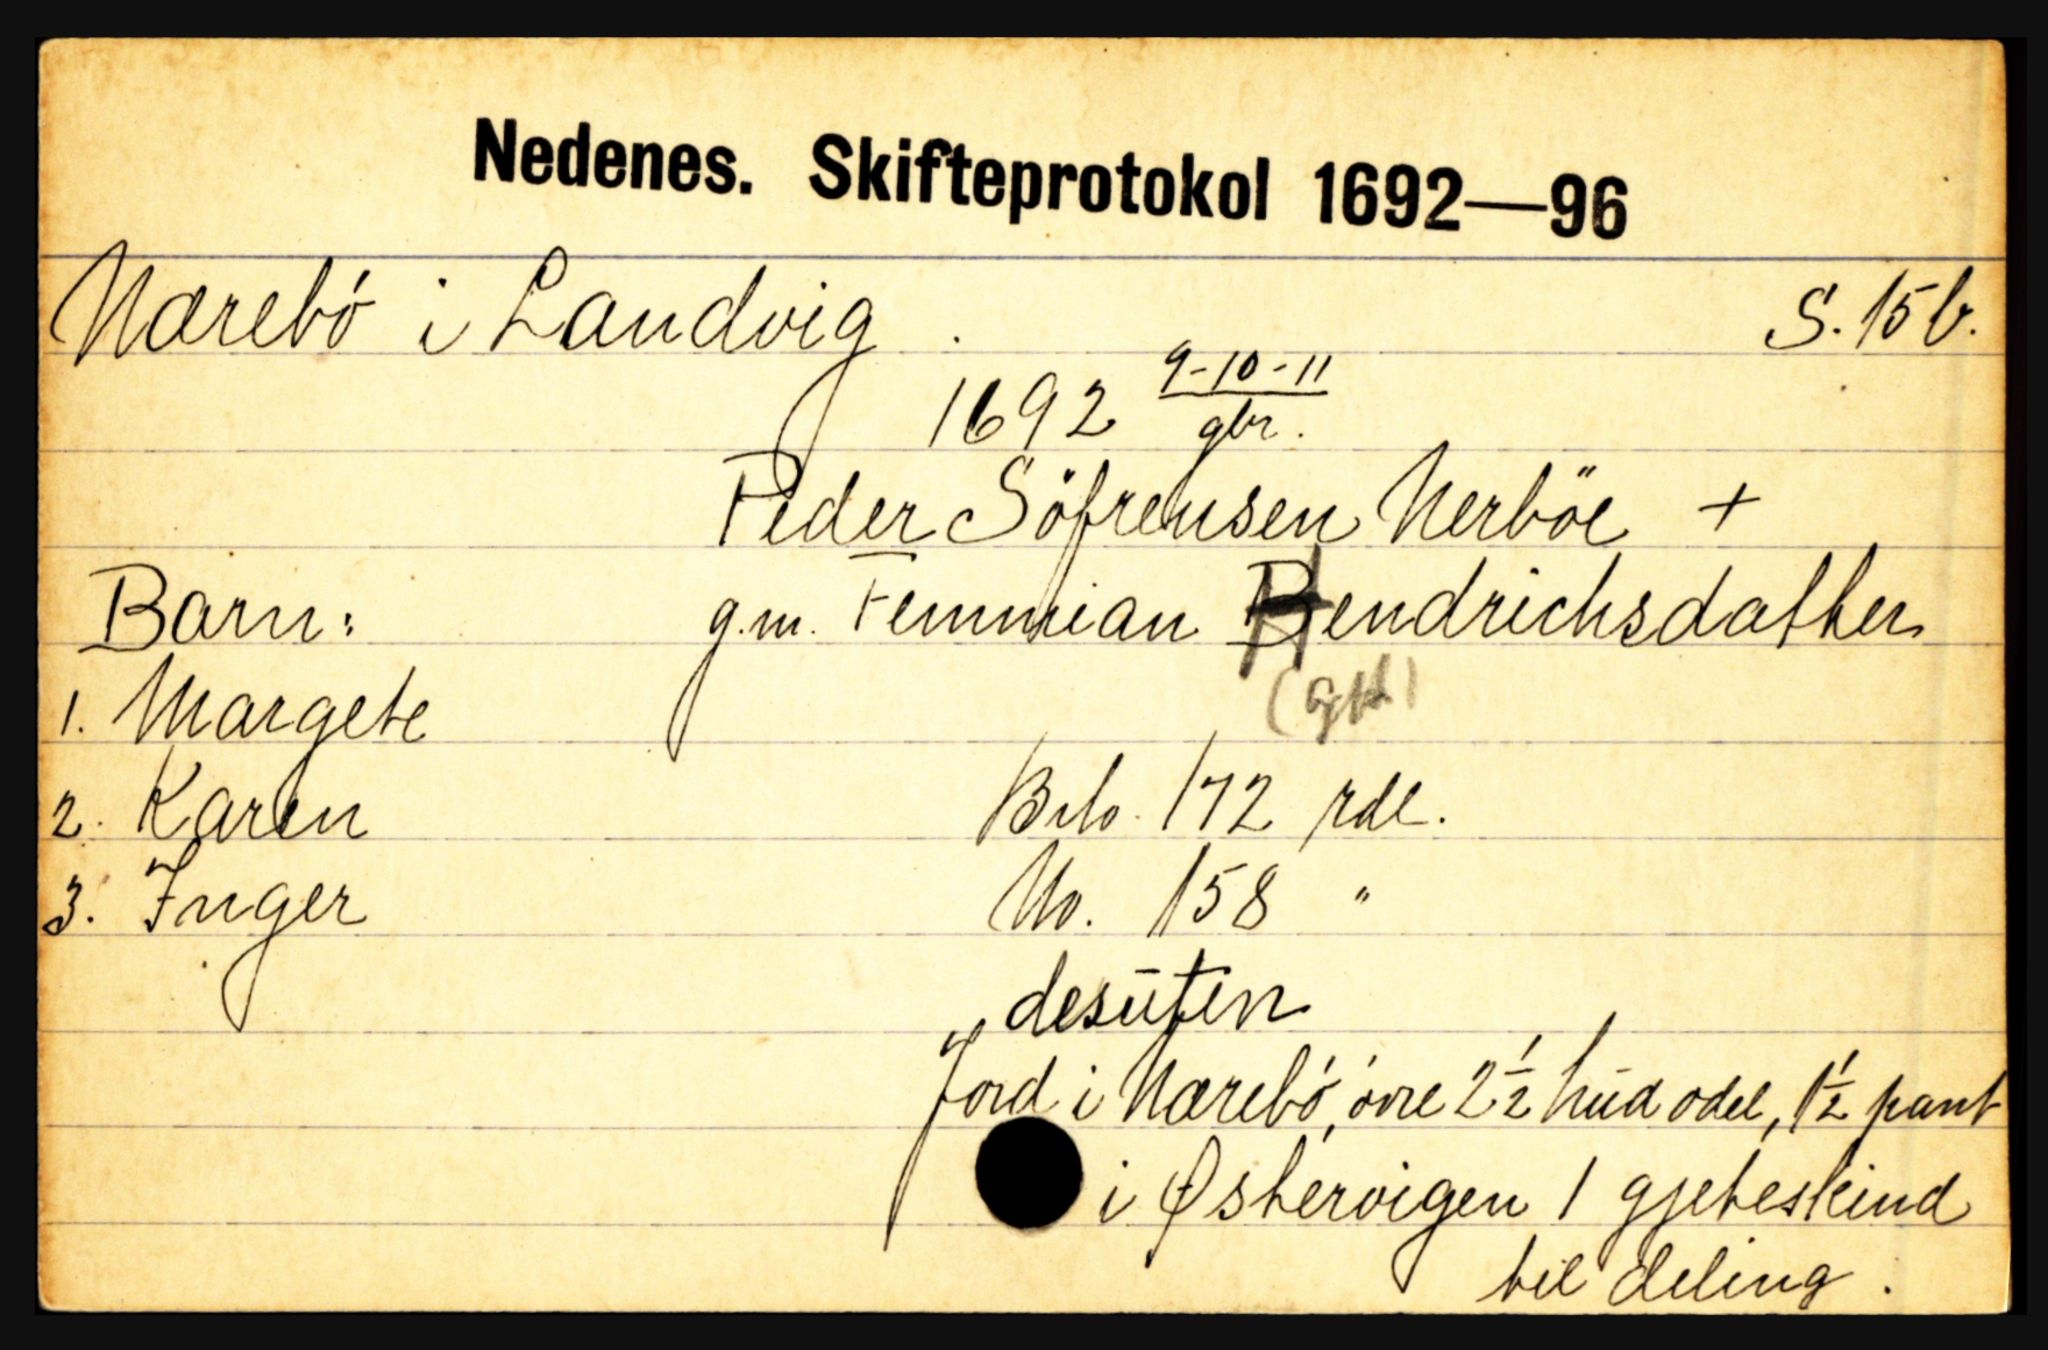 Nedenes. Skifteprotokol 1692—96
Nærebö i Landvig S. 15 b.
1692 9-10-11 / gbr.
Peder Söfrensen Nerböe +
Barn: g.m. Femmian Hendrichsdatter
1. Margete
2. Karen Brto. 172 rdl.
3. Inger No. 158 "
desuten
Jord i Nærebö, övre 2 1/2 hud odel, 1 1/2 pant
i Østervigen 1 gjeteskind
til deling.